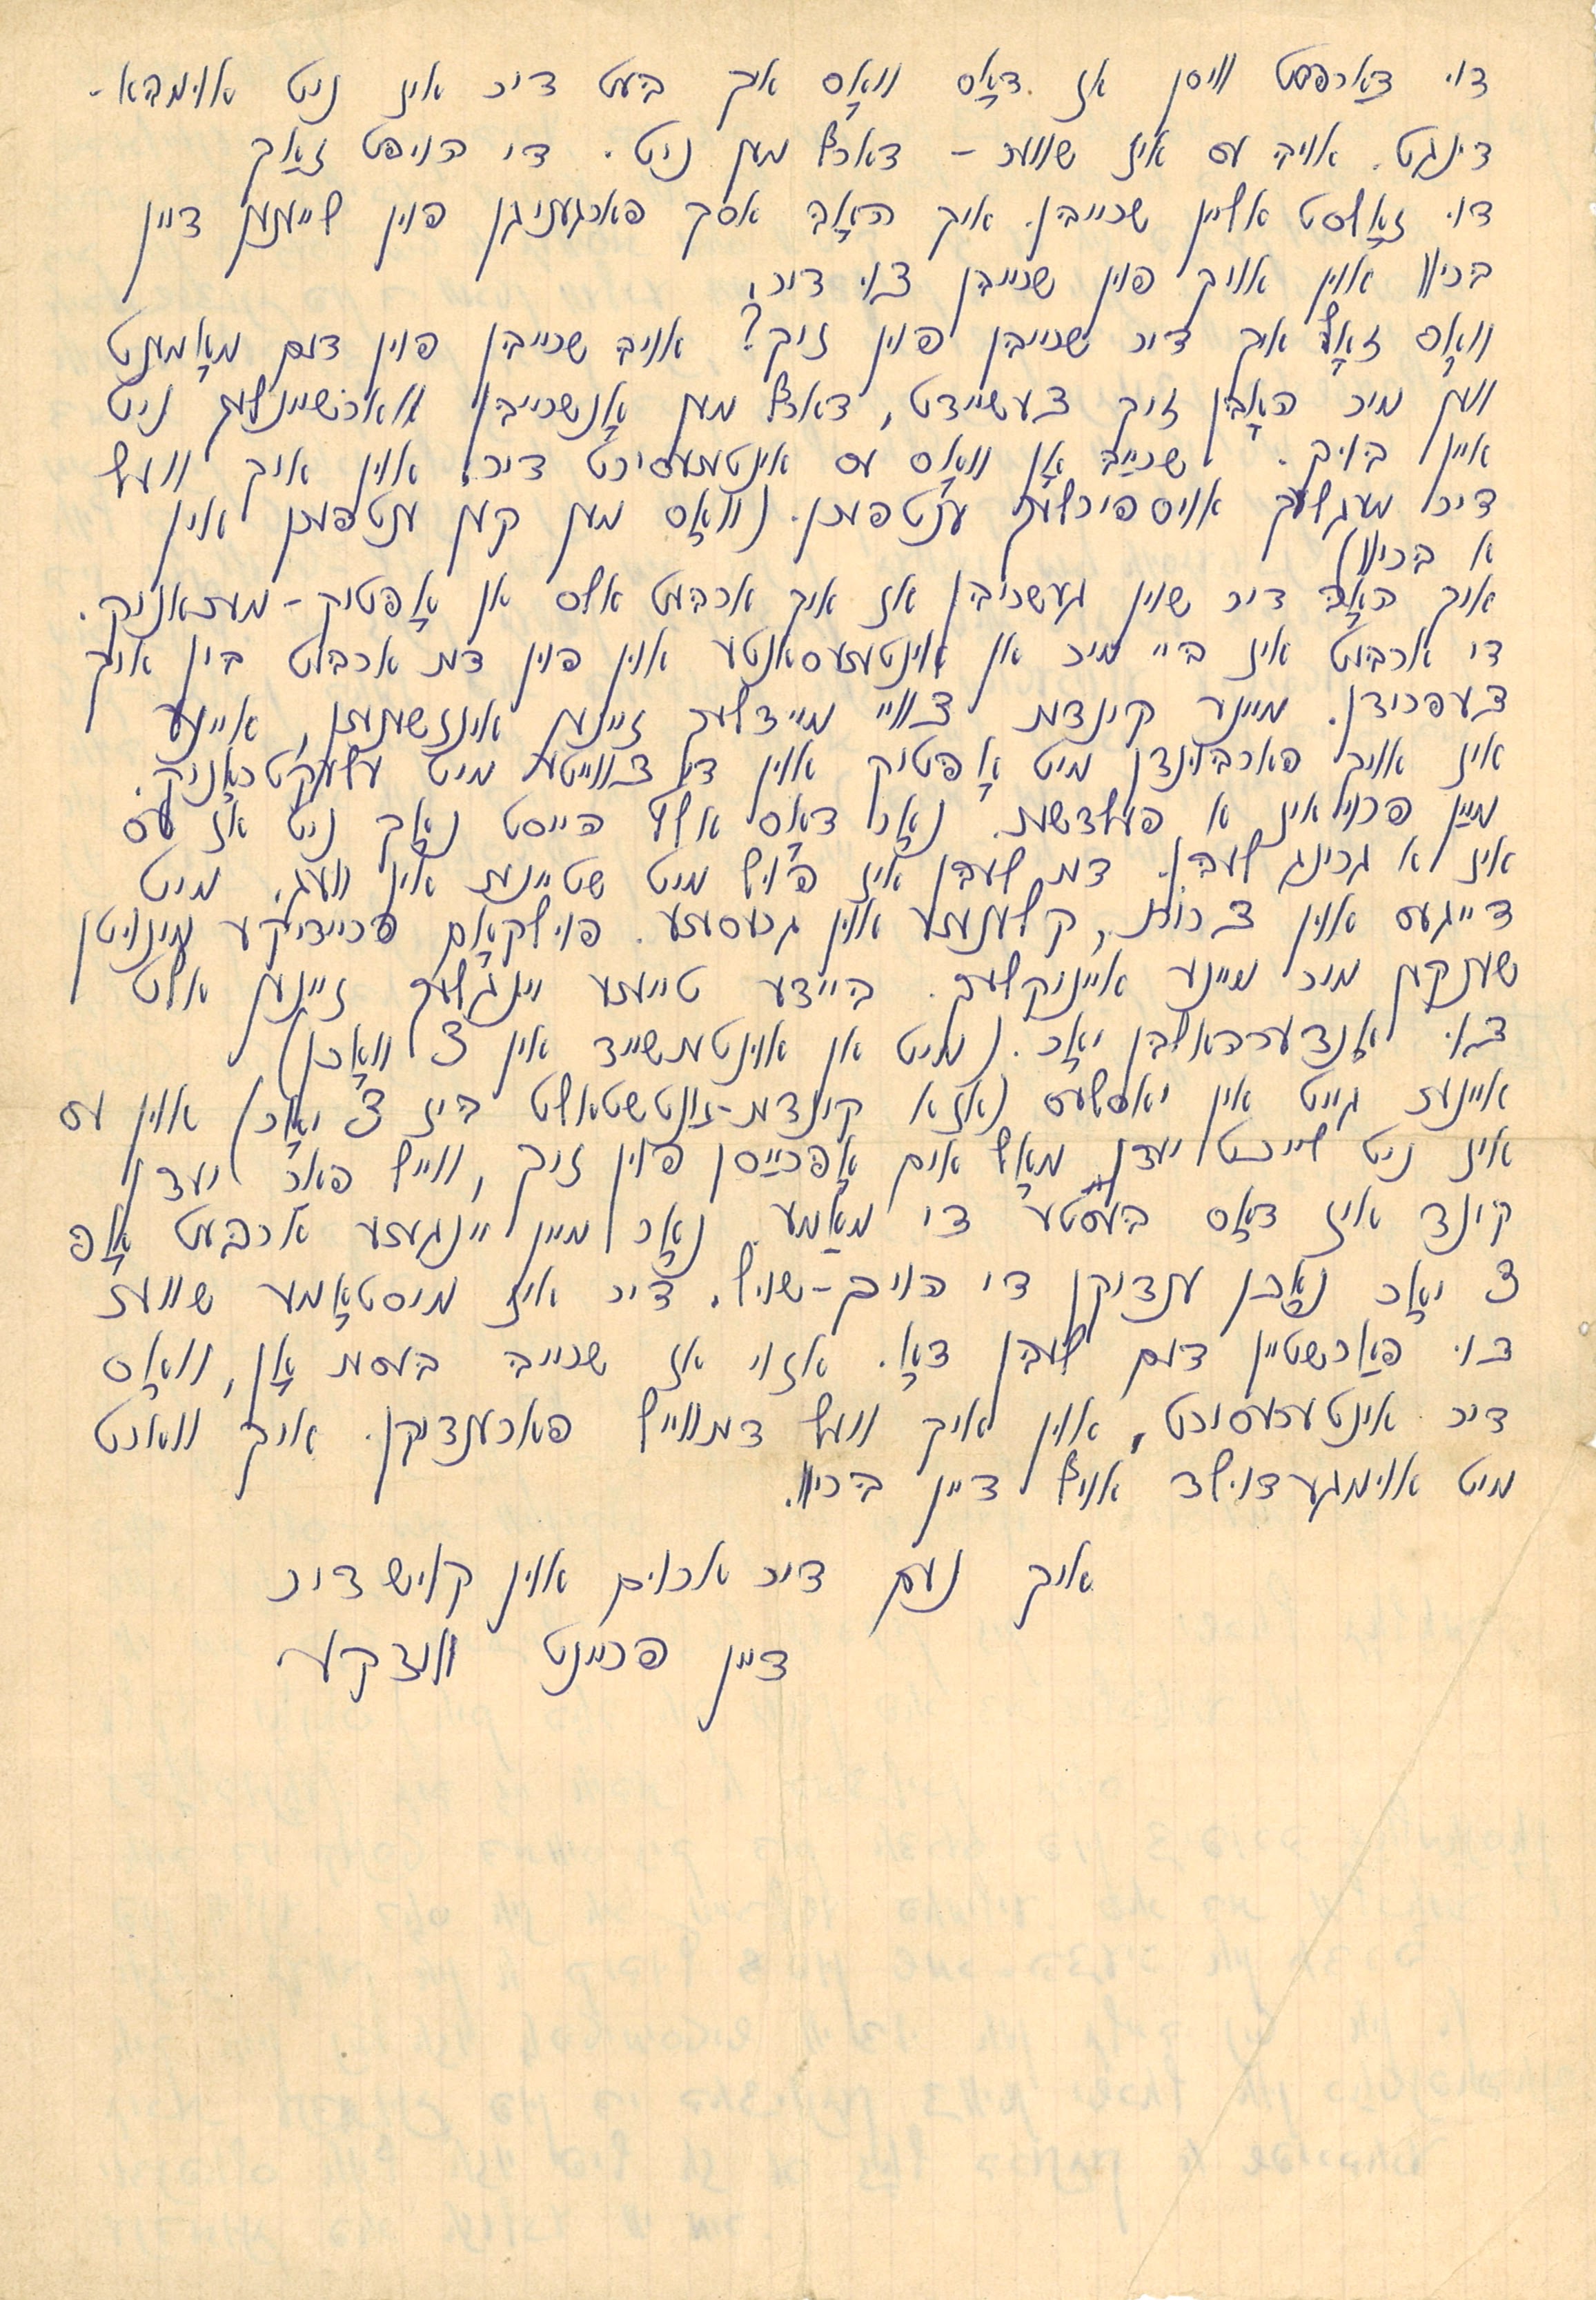 דוי דאַרפסט וויסן אז דאָס וואָס איך בעט דיר איז ניט אוימבא-
דינגט. אויב עס איז שווער – דארף מען ניט. די הויפט זאַך
דוי זאָלסט אליין שרייבן. איך האָב אסך פארגעניגן פוין לייענען דיין
בריוו אוין אויך פוין שרייבן צוי דיר.
וואָס זאָל איך דיר שרייבן פוין זיך? אויב שרייבן פוין דעם מאָמענט
ווען מיר האָבן זיך צעשיידט, דארף מען אָנשרייבן ווארשיינלעך ניט
איין בויך. שרייַב אָן וואָס עס אינטערעסירט דיר, אוין איך וועל
דיר מעגלעך אויספירלעך ענטפערן. (וואָס מען קען ענטפערן אין
א בריוו)
איך האָב דיר שוין געשריבן אז איך ארבעט אלס אן אָפטיק-מעכאניק.
די ארבעט איז ביי מיר אן אינטערעסאנטע אוין פוין דער ארבעט בין איך
צעפרידן. מיינע קינדער צוויי מיידלעך זיינען אינזשענערן, איינע
איז אויך פארבוינדן מיט אָפטיק אוין די צווייטע מיט עלעקטראָניק.
מיין פרוי איז א פעלדשער. נאָר דאָס אלץ הייסט נאָך ניט אז עס
איז א גרינג לעבן. דער לעבן איז פויל מיט שטיינער אין וועג, מיט
דייגעס אוין צרות, קלענערע אוין גרעסערע. פוילקאָם פריידיקע מינויטן
שענקען מיר מיינע אייניקלעך. ביידע טייערע יינגלעך זיינען אלט
צוי אנדערהאלבן יאָר. (מיט אן אוינטערשייד אין 3 וואָכן)
איינער גייט אין יאסלעס (אזא קינדער-אנשטאלט ביז 3 יאָר) אוין עס
איז ניט לייכט יעדן מאָל אים אָפרייַסן פוין זיך, ווייל פאר יעדן
קינד איז דאָס בעסטע די מאַמע. נאָר מיין יינגערע ארבעט אָפ
3 יאָר נאָכן ענדיקן די הויך-שויל. דיר איז מיסטאָמע שווער
צוי פאַרשטיין דעם לעבן דאָ. אזוי אז שרייב בעסער אָן, וואָס
דיר אינטערעסירט, אוין איך וועל דערווייל פארענדיקן. איך ווארט
מיט אוימגעדוילד אויף דיין בריוו.
איך נעם דיר ארוים אוין קויש דיר
דיין פריינט